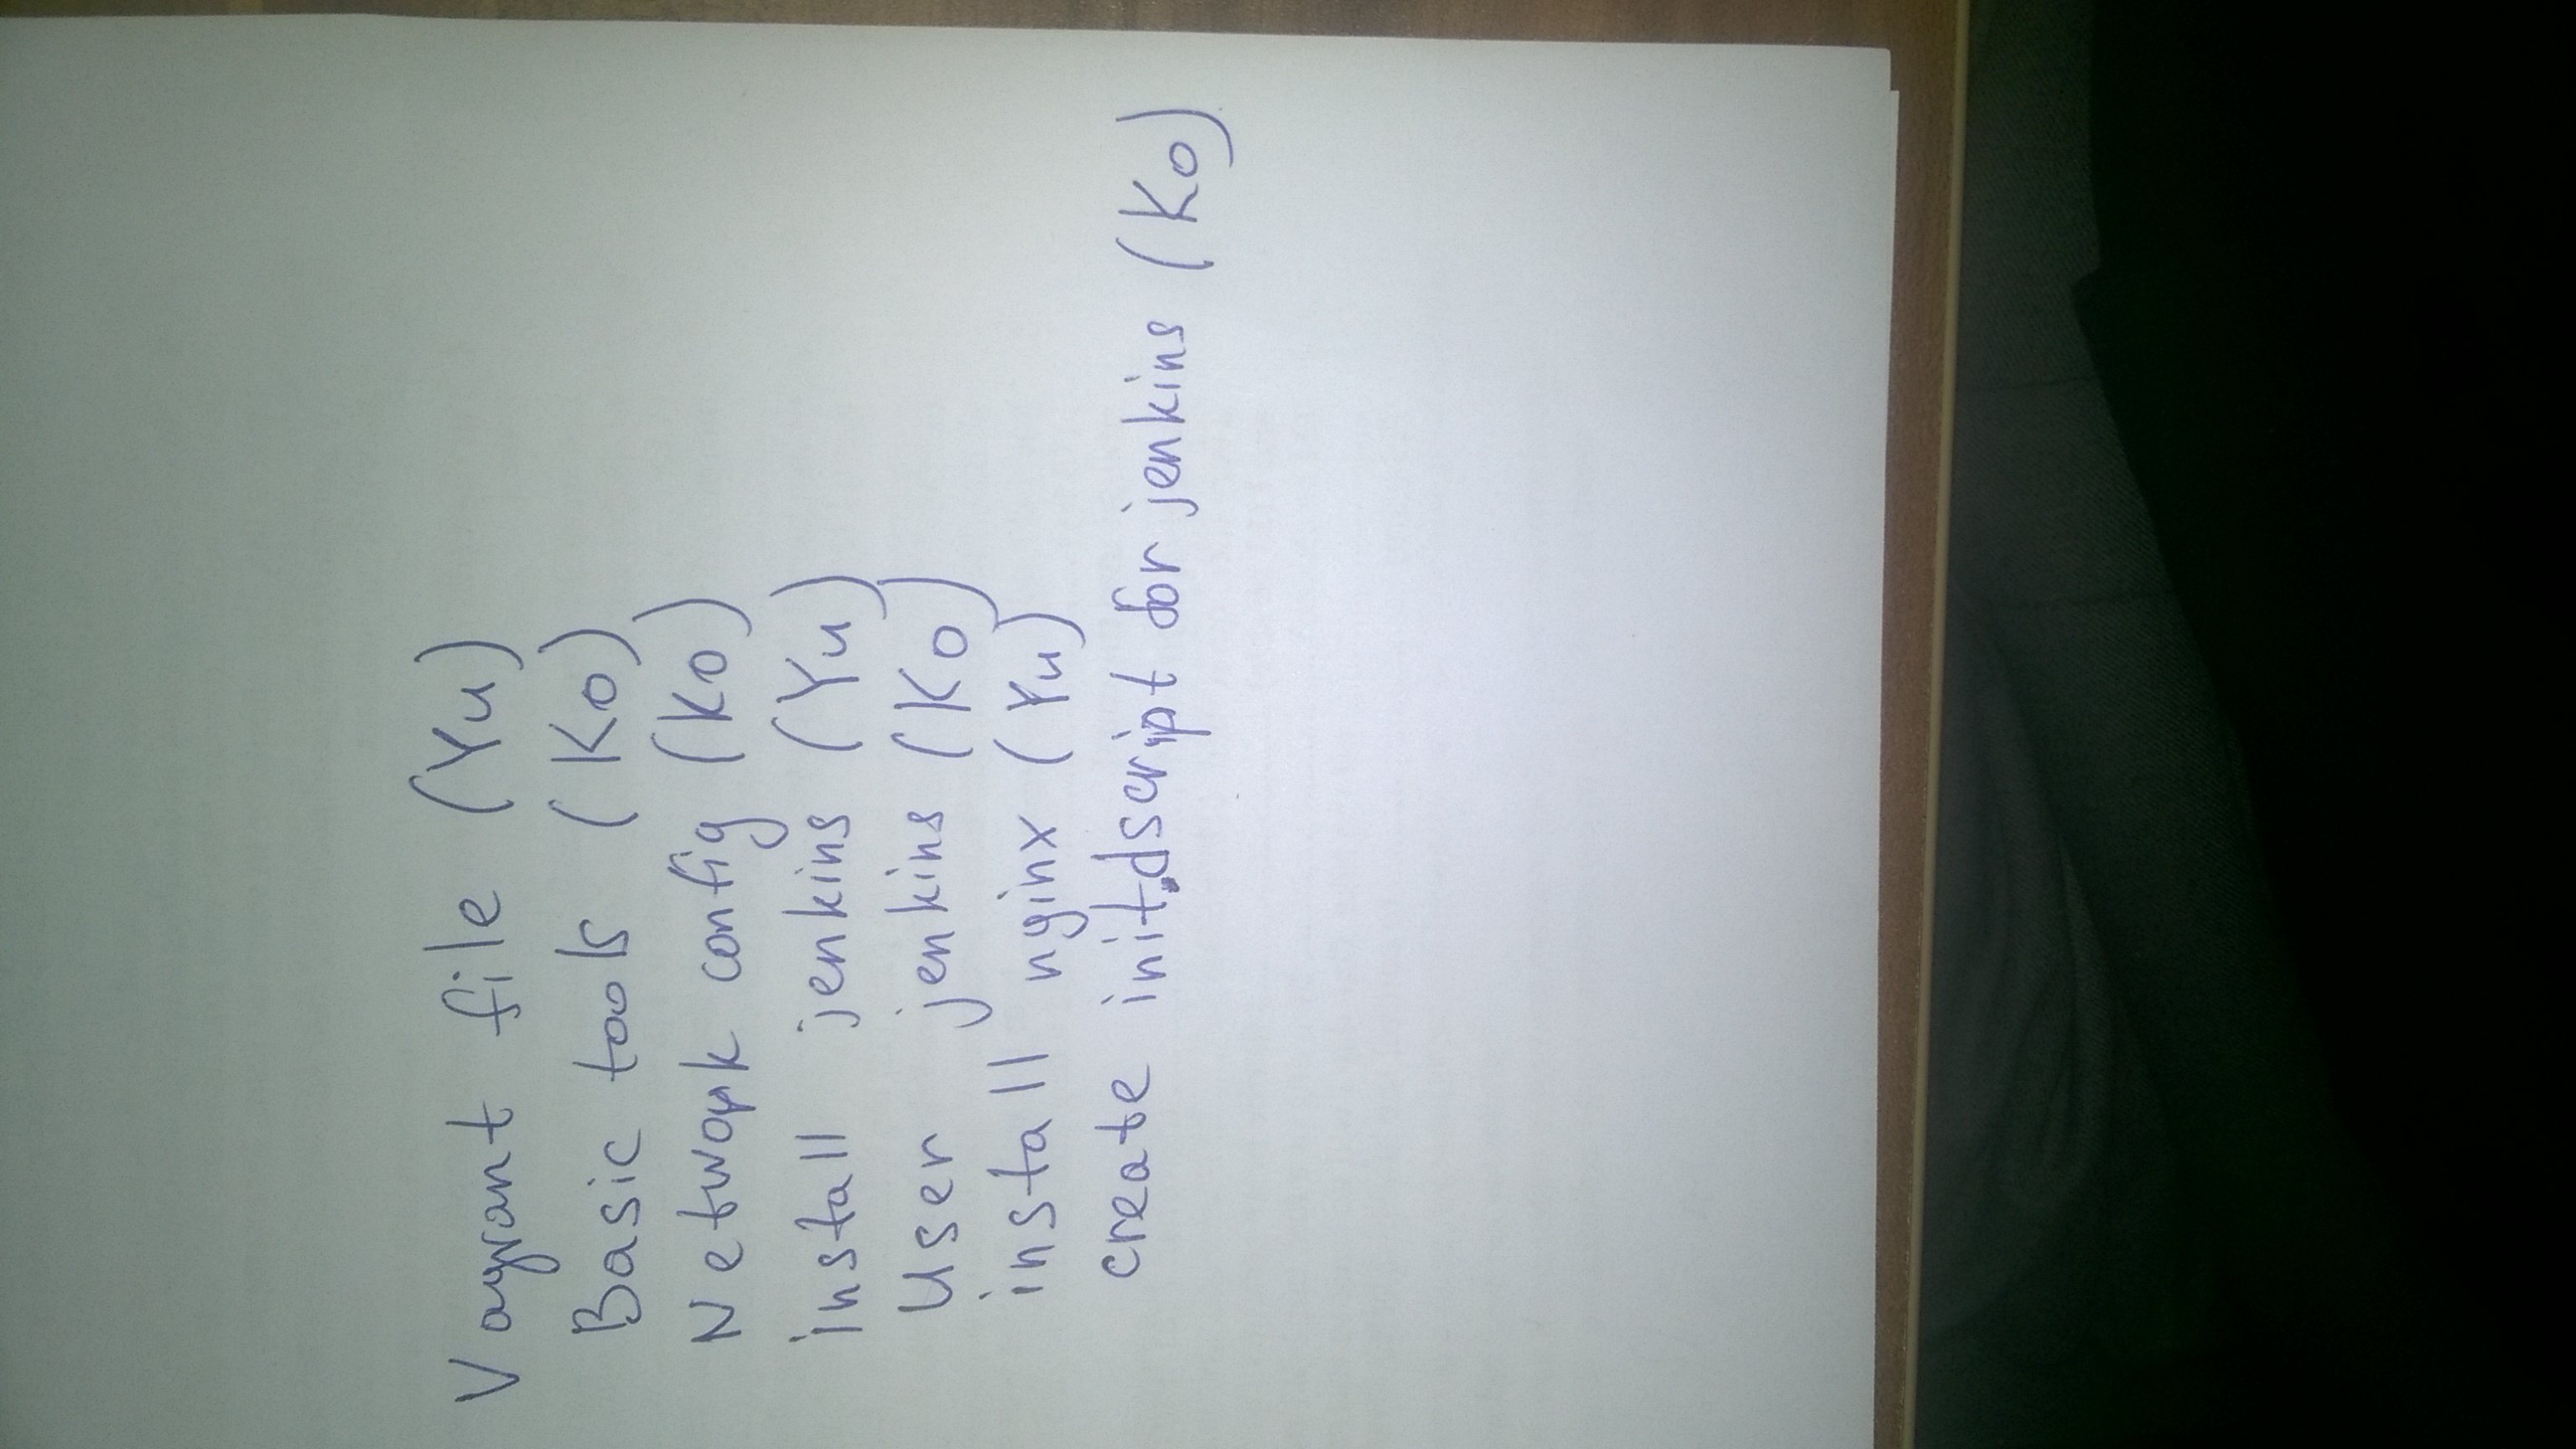 Vagrant file (Yu)
Basic tools (Ko)
Network config (Ko)
install jenkins (Yu)
User jenkins (Ko)
install nginx (Yu)
create init.dscript for jenkins (Ko)